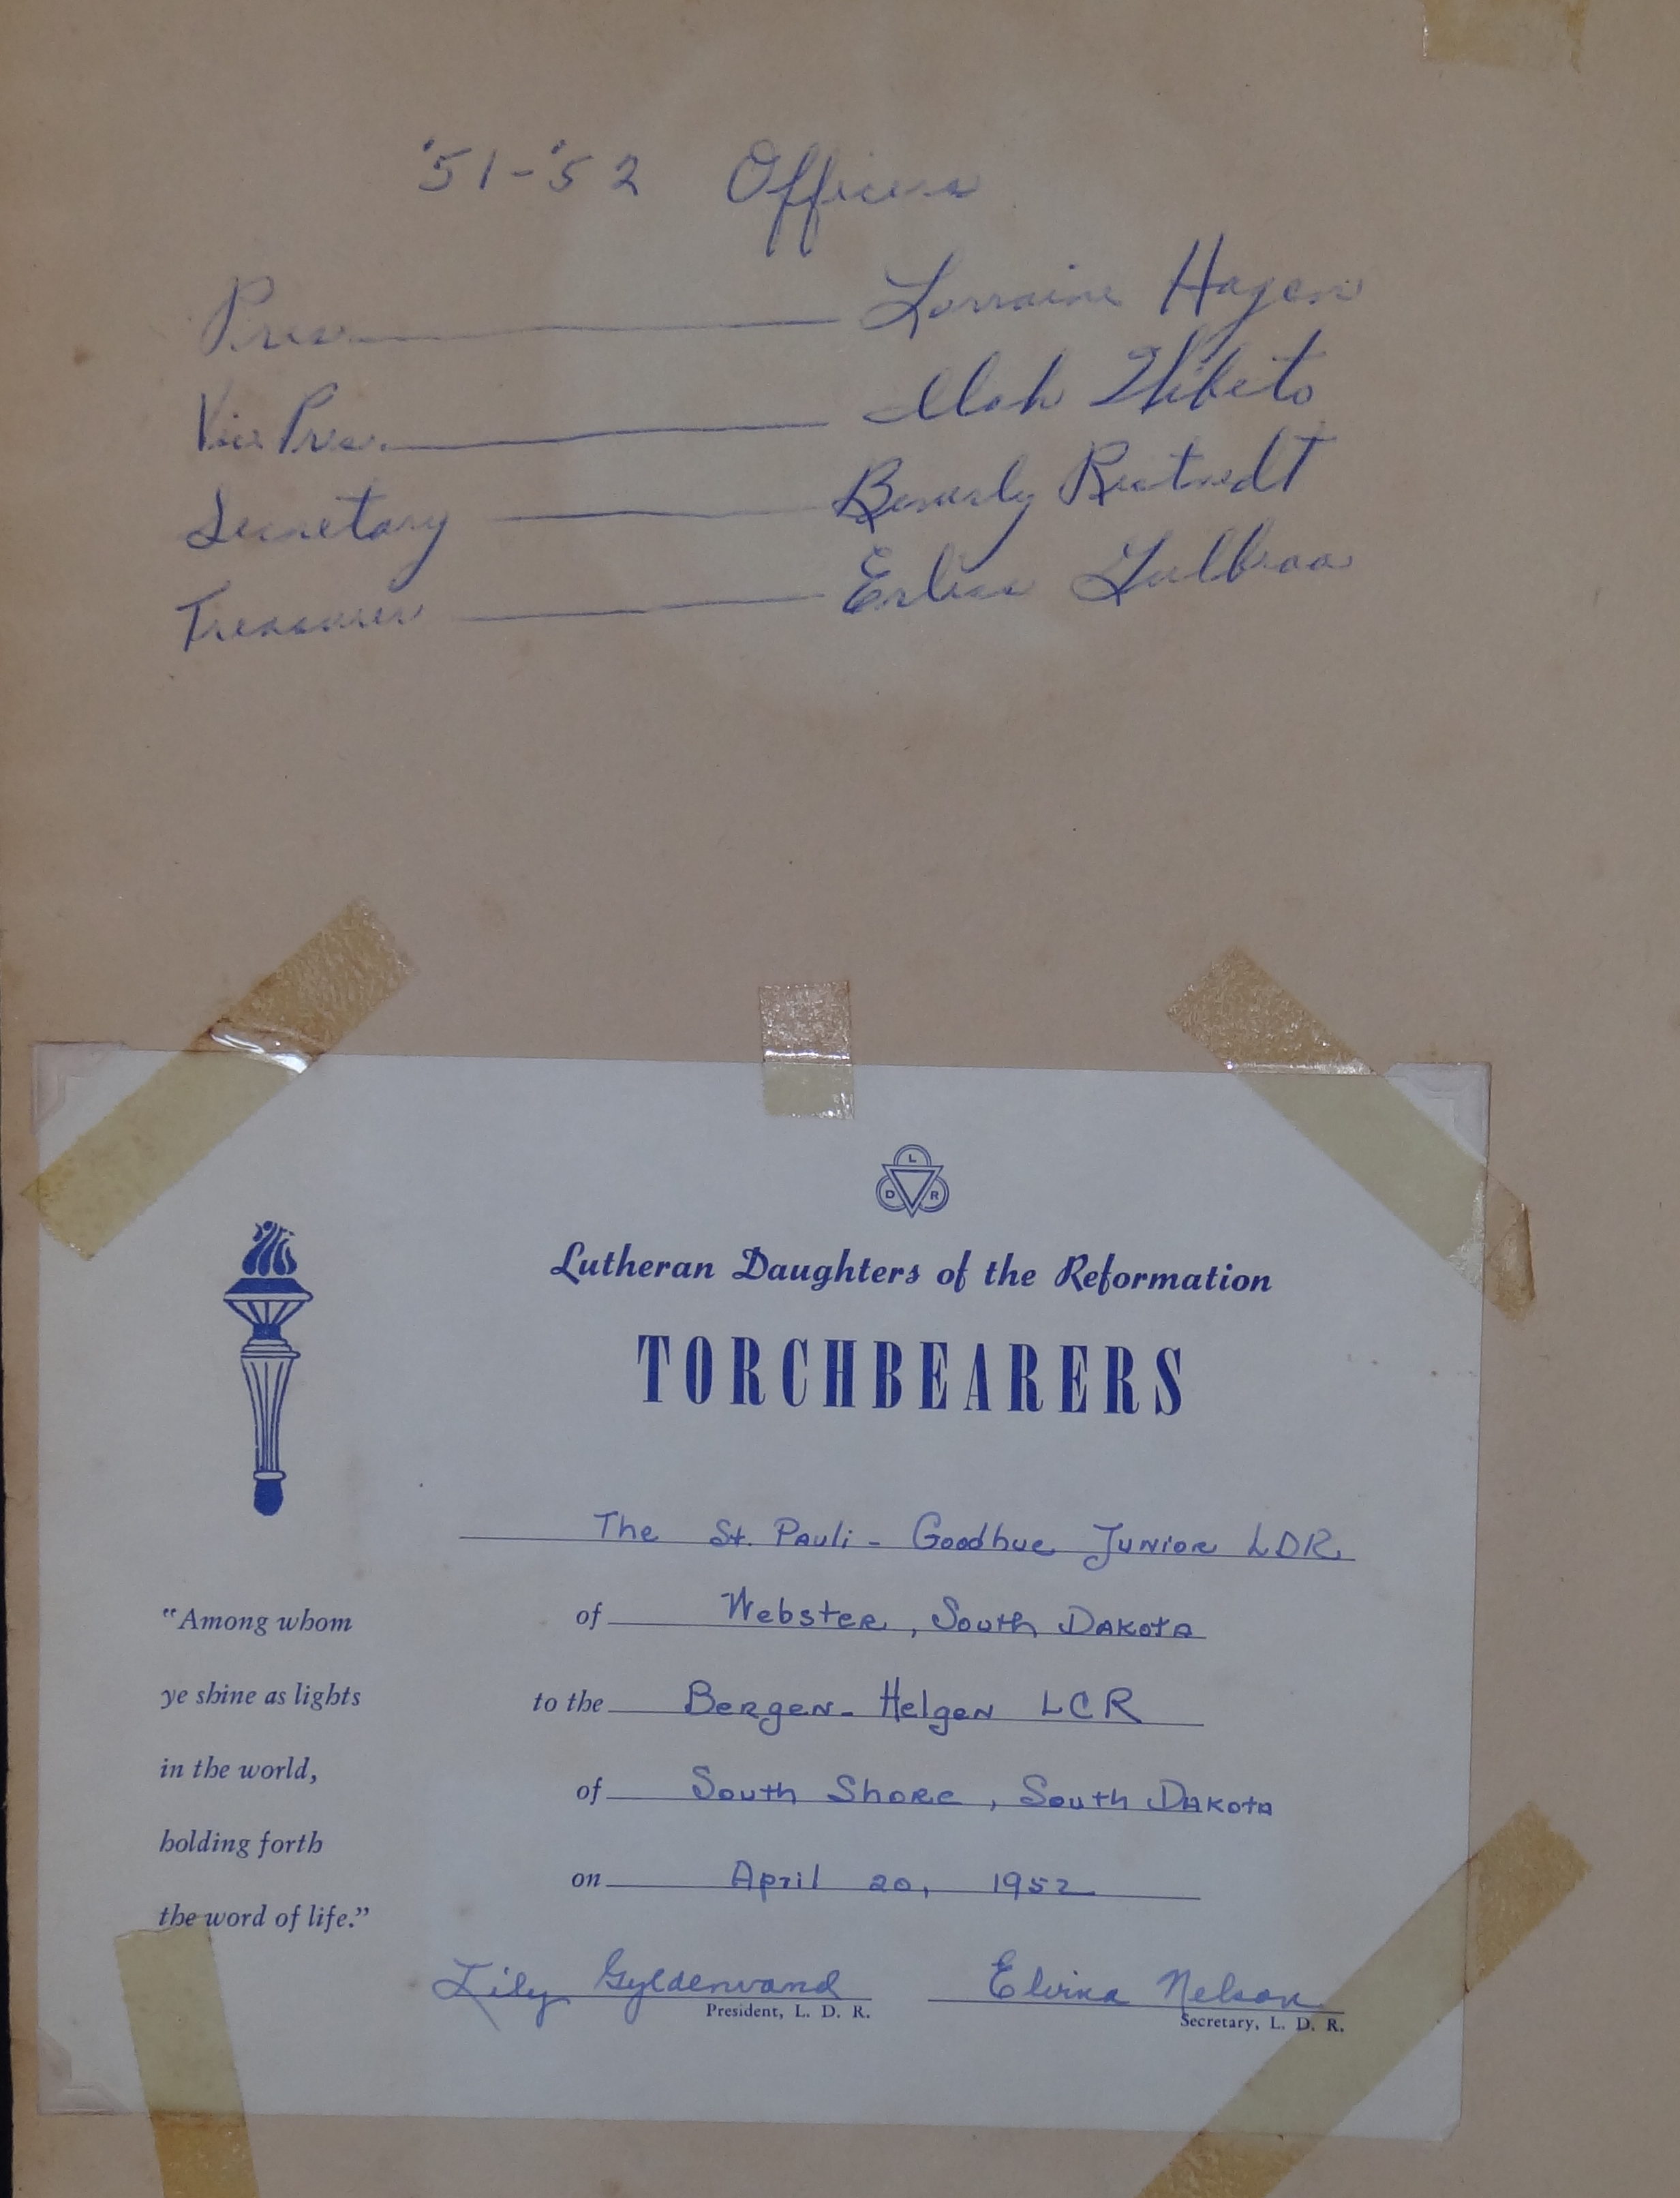 '51-'52 Officers
Pres. Lorraine Hagen
Vice Pres. Ilah
Secretary Beverly
Treasurer
L
D R
Lutheran Daughters of the Reformation
TORCHBEARERS
The St. Pauli - Goodhue Junior LDR.
of Webster, South Dakota
to the Bergen- Helgen LCR
of South Shore, South Dakota
on April 20, 1952
"Among whom
ye shine as lights
in the world,
holding forth
the word of life."
Lily Gyldenvand
President, L. D. R.
Elvina Nelson
Secretary, L. D. R.